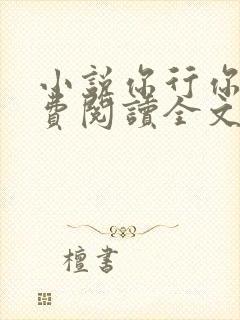 小說你行你
費閱讀全文
檀書